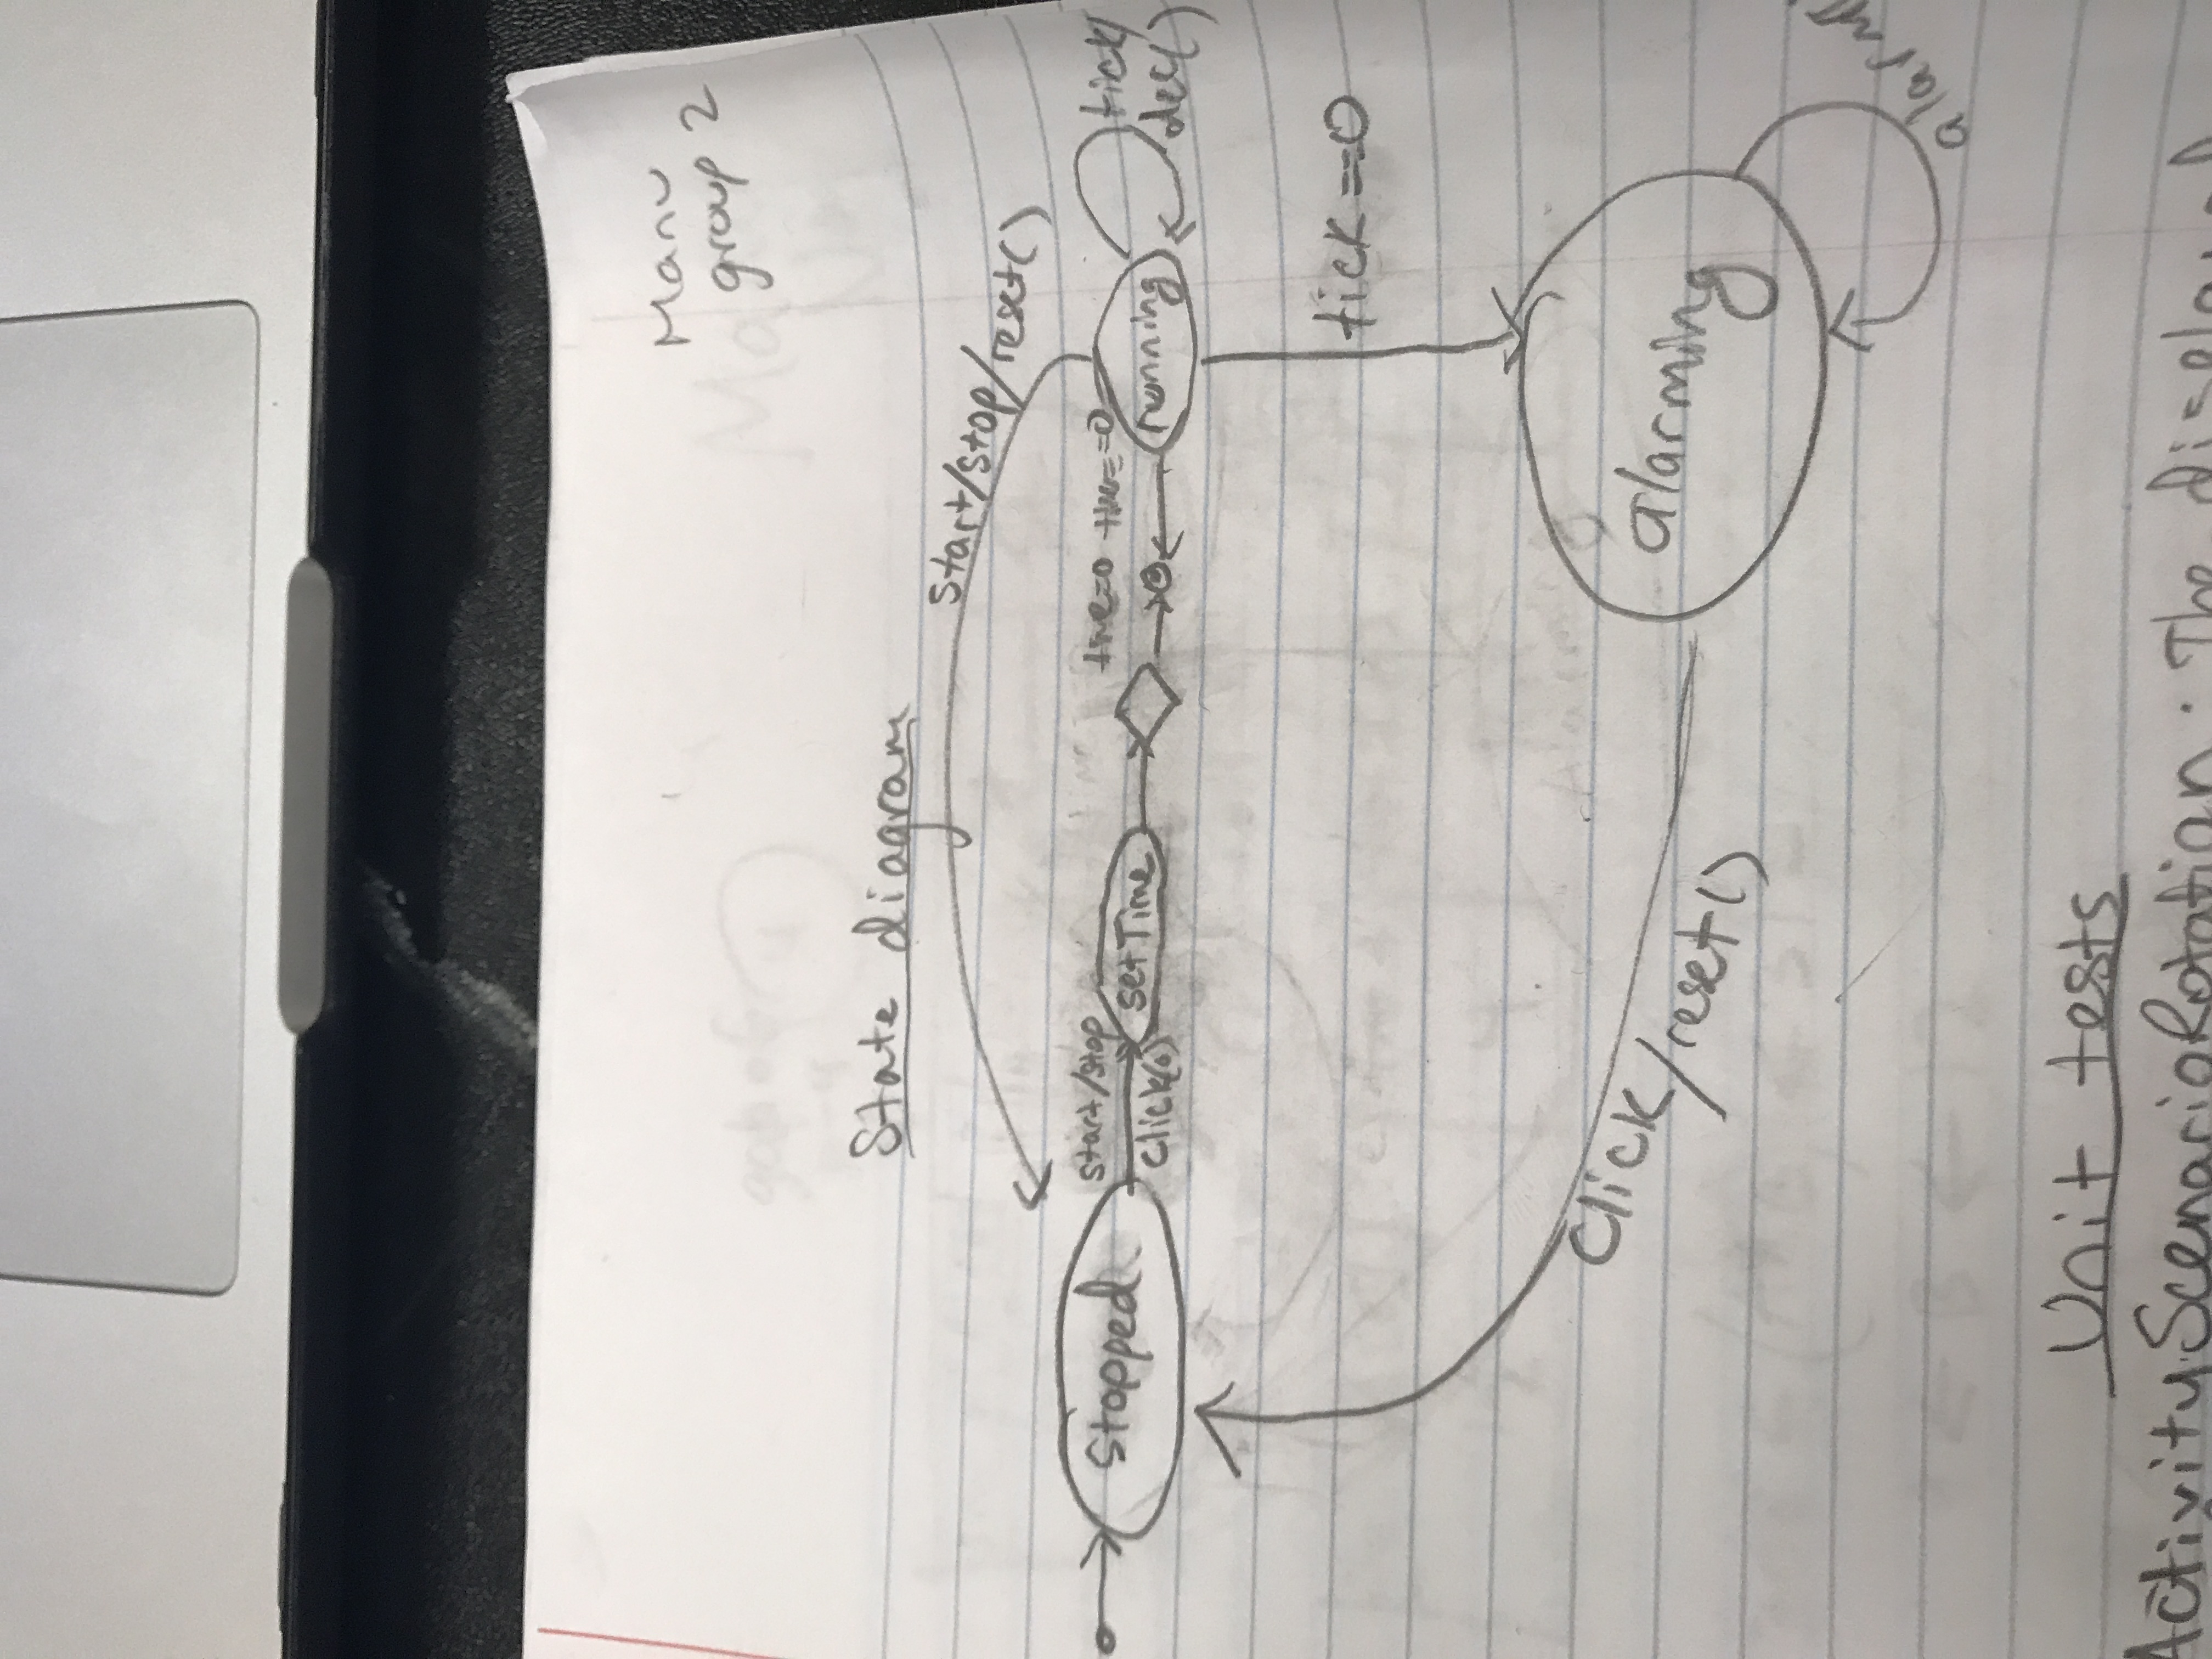 Manu
group 2
State diagram
Start/Stop/reset()
Stopped
start/stop
click(0)
setTime
time=0
time==0
running
tick/
dec()
tick==0
Click/reset()
alarming
alarm
Unit tests
ActivityScenarioRotation. The display of